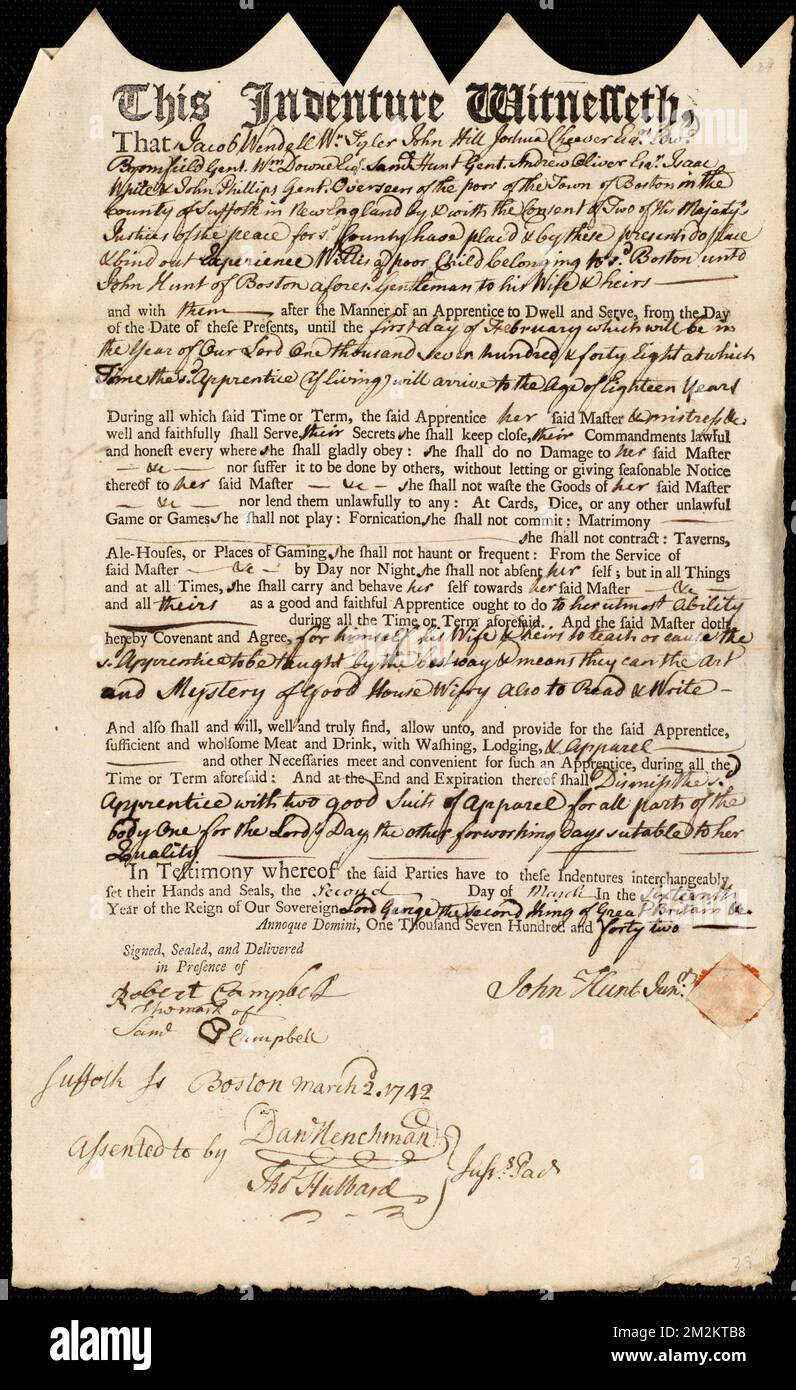 This Indenture Witnesseth,
That Jacob Wendell Wm Tyler John Hill Joshua Cheever Esqrs Edwd
Bromfield Gent. Wm Downe Esq. Saml Hunt Gent. Andrew Oliver Esqr. Isaac
White & John Phillips Gent. Overseers of the poor of the Town of Boston in the
County of Suffolk in New England by & with the Consent of Two of His Majestys
Justices of the peace for sd County have plac'd & by these presents do place
& bind out Experience Willis a poor Child belonging to sd Boston unto
John Hunt of Boston afores. Gentleman to his Wife & heirs
and with them after the Manner of an Apprentice to Dwell and Serve, from the Day
of the Date of these Presents, until the first day of February which will be in
the Year of Our Lord One thousand Seven hundred & forty Eight at which
Time the sd. Apprentice (if living) will arrive to the Age of Eighteen Years
During all which said Time or Term, the said Apprentice her said Master & mistress &c
well and faithfully shall Serve, their Secrets she shall keep close, their Commandments lawful
and honest every where she shall gladly obey: she shall do no Damage to her said Master
&c nor suffer it to be done by others, without letting or giving seasonable Notice
thereof to her said Master &c she shall not waste the Goods of her said Master
&c nor lend them unlawfully to any: At Cards, Dice, or any other unlawful
Game or Games she shall not play: Fornication she shall not commit: Matrimony
she shall not contract: Taverns,
Ale-Houses, or Places of Gaming she shall not haunt or frequent: From the Service of
said Master &c by Day nor Night she shall not absent her self; but in all Things
and at all Times, she shall carry and behave her self towards her said Master &c
and all theirs as a good and faithful Apprentice ought to do to her utmost Ability
during all the Time or Term aforesaid. And the said Master doth
hereby Covenant and Agree, for himself his Wife & heirs to teach or cause the
s. Apprentice to be taught by the best way & means they can the Art
and Mystery of Good House Wifry also to Read & Write
And also shall and will, well and truly find, allow unto, and provide for the said Apprentice,
sufficient and wholsome Meat and Drink, with Washing, Lodging, & Apparel
and other Necessaries meet and convenient for such an Apprentice, during all the
Time or Term aforesaid: And at the End and Expiration thereof shall Dismiss the sd
Apprentice with two good Suits of Apparel for all parts of the
body One for the Lord's Day, the other for working days suitable to her
Quality
In Testimony whereof the said Parties have to these Indentures interchangeably
set their Hands and Seals, the Second Day of March In the sixteenth
Year of the Reign of Our Sovereign Lord George the Second King of Great Britain &c
Annoque Domini, One Thousand Seven Hundred and forty two
Signed, Sealed, and Delivered
in Presence of
Robert Campbell
John Hunt Junr
The mark of
Saml Campbell
Suffolk ss Boston March 2d. 1742
Assented to by Dan Henchman
Tho Hubbard
Jus.s Pac
39
alamy
Image ID: 2M2KTB8
www.alamy.com